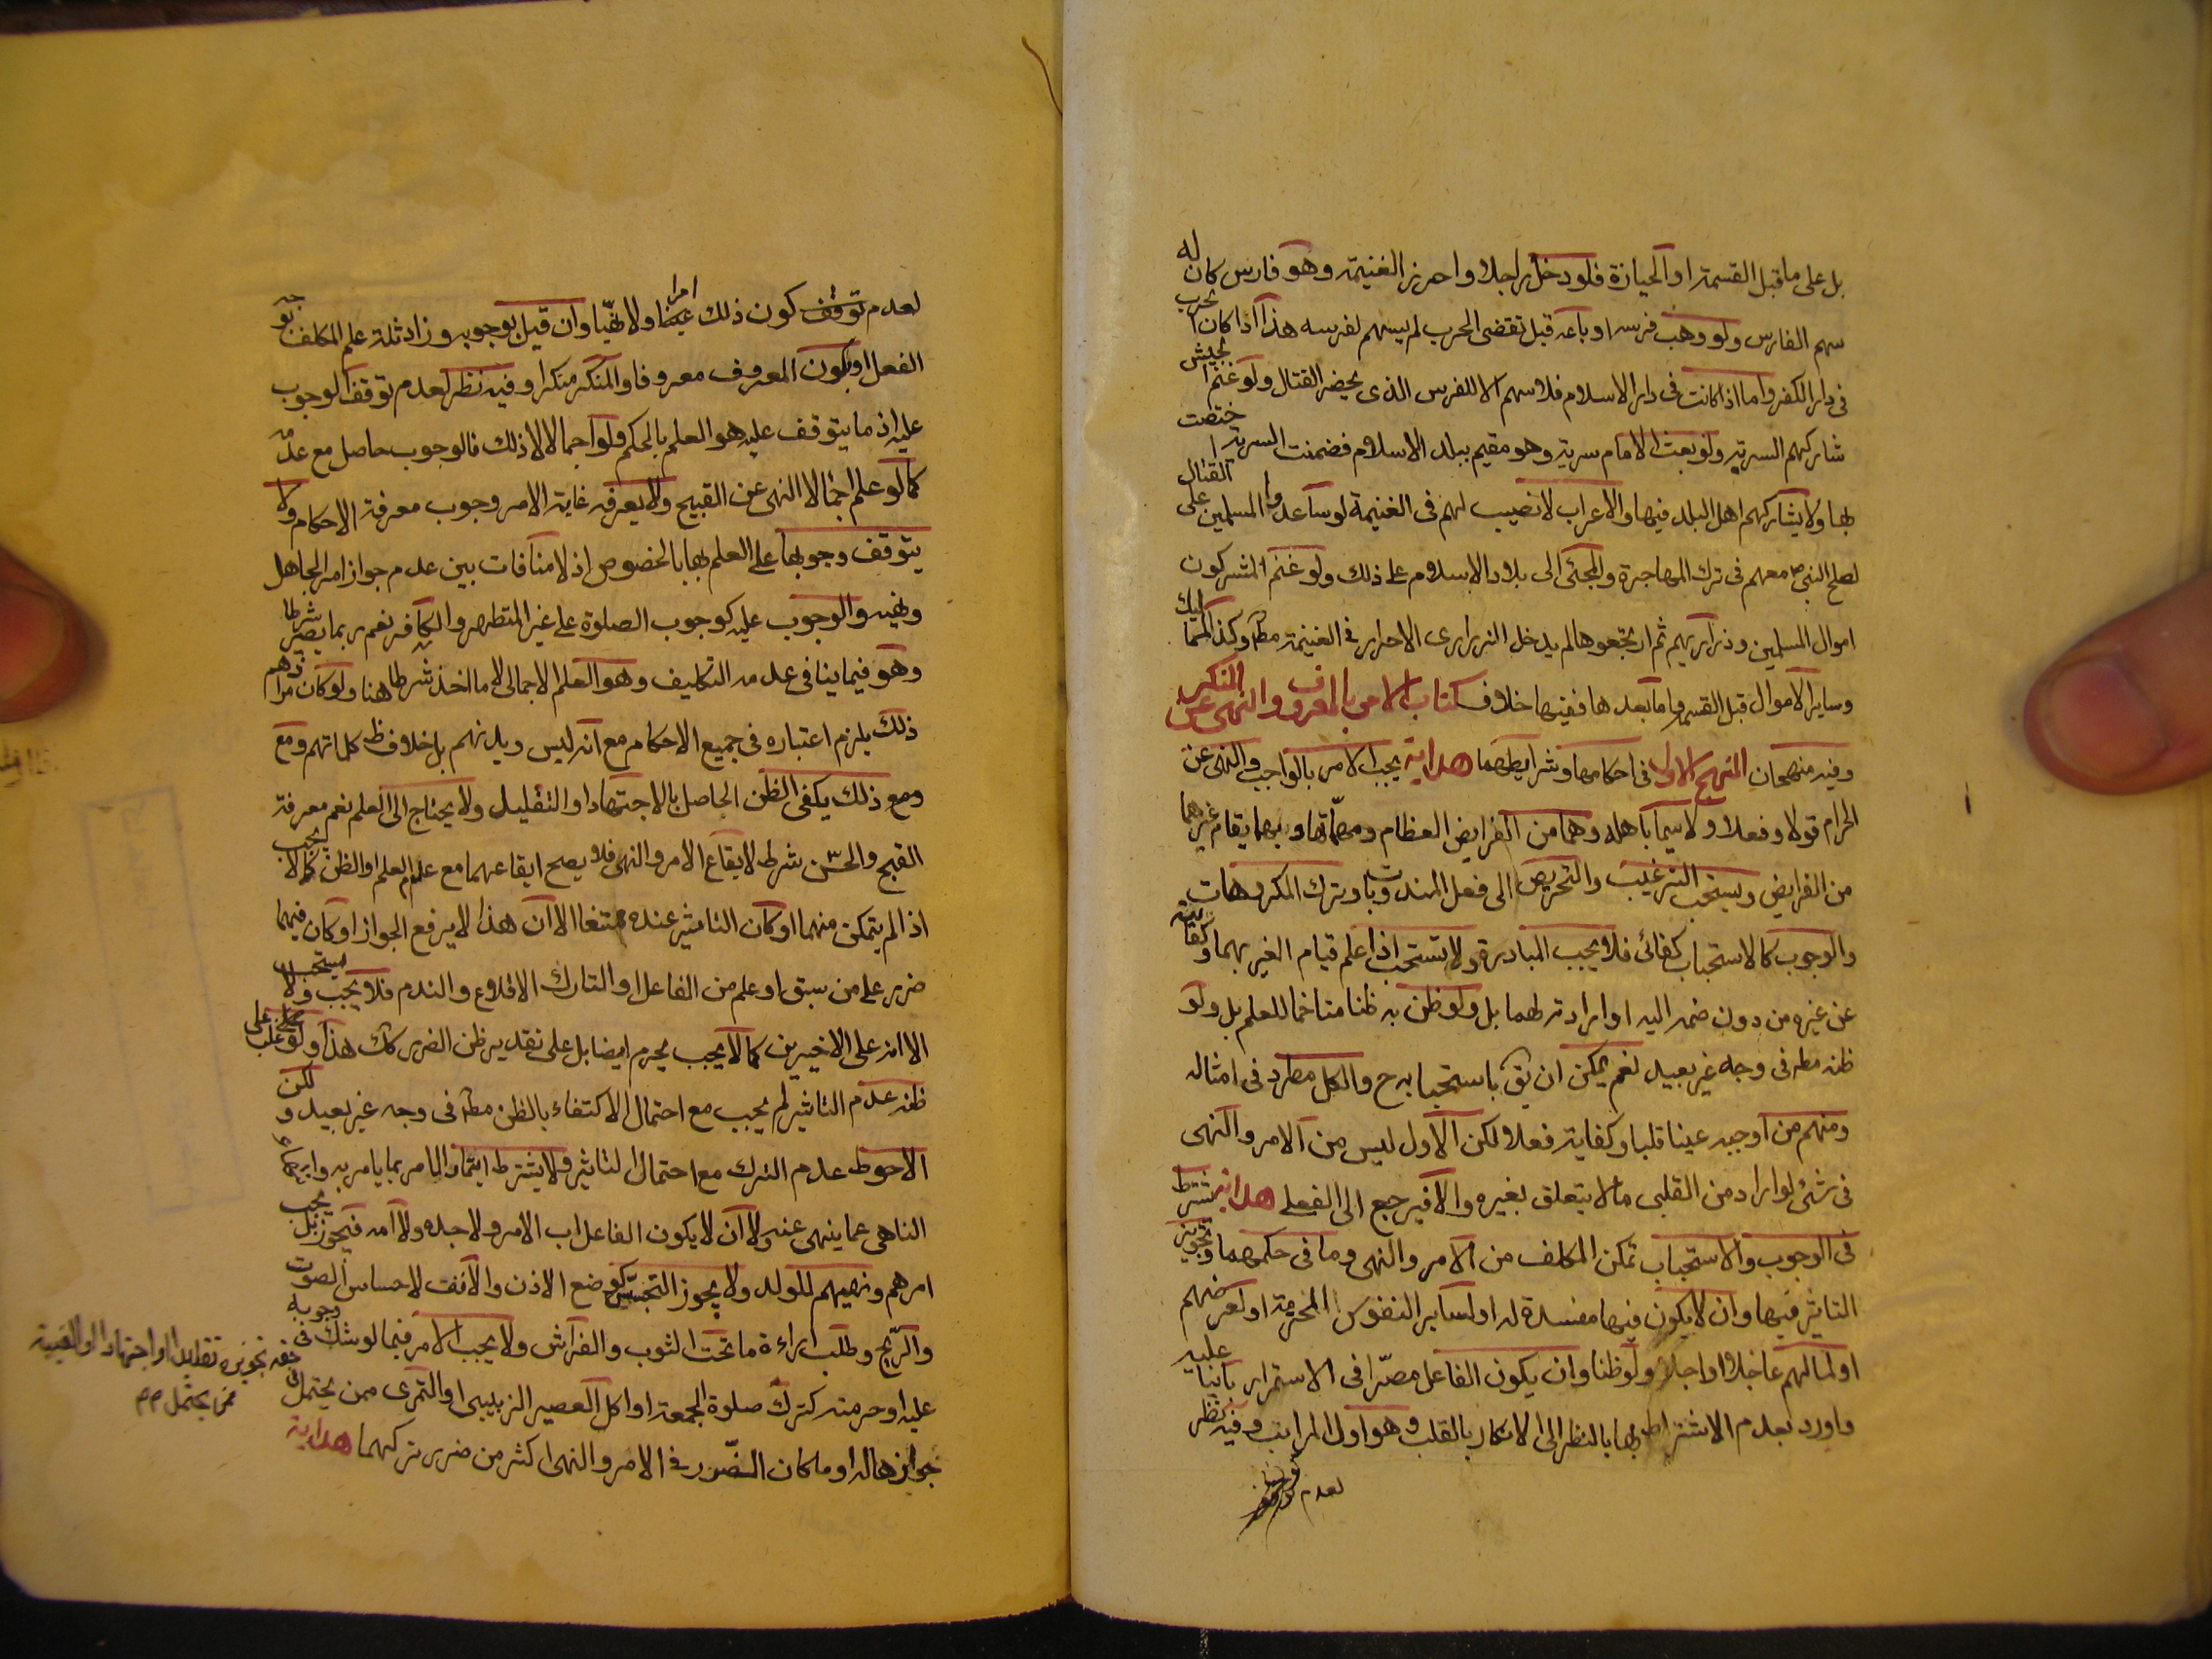 بل على ما قبل القسمة او الحيازة فلو دخل راجلا واحرز الغنيمة وهو فارس كان له
سهم الفارس ولو وهب فرسه او باعه قبل تقضى الحرب لم يسهم لفرسه هذا اذا كان الحرب
فى دار الكفر واما اذا كانت فى دار الاسلام فلا سهم الا للفرس الذى يحضر القتال ولو غنم الجيش
شاركهم السرية ولو بعث الامام سرية وهو مقيم ببلد الاسلام فغنمت السرية اختصت
بها ولا يشاركهم اهل البلد فيها والاعراب لا نصيب لهم فى الغنيمة لو ساعدوا المسلمين على القتال
لصلح النبى ص معهم فى ترك المهاجرة والمجئ الى بلاد الاسلام على ذلك ولو غنم المشركون
اموال المسلمين وذراريهم ثم ارتجعوها لم يدخل الذرارى الاحرار فى الغنيمة مطلقا وكذا المماليك
وساير الاموال قبل القسمة واما بعدها ففيها خلاف كتاب الامر بالمعروف والنهى عن المنكر
وفيه منهجان النهج الاول فى احكامها وشرايطهما هداية يجب الامر بالواجب والنهى عن
الحرام قولا وفعلا ولا سيما باهله وهما من الفرايض العظام ومهماتها وبهما يقام غيرهما
من الفرايض ويستحب الترغيب والتحريص الى فعل المندوبات وترك المكروهات
والوجوب كالاستحباب كفائى فلا يجب المبادرة ولا تستحب اذا علم قيام الغير بهما وكفايته
عن غيره من دون ضمه اليه او ارادته لهما بل ولو ظن به ظنا متاخما للعلم بل ولو
ظنه مطلقا فى وجه غير بعيد نعم يمكن ان يق باستحبابه ح والكل مطرد فى امثاله
ومنهم من اوجبه عينا قلبا وكفاية فعلا ولكن الاول ليس من الامر والنهى
فى شئ لو اراد من القلبى ما لا يتعلق بغيره والا فيرجع الى الفعلى هداية يشترط
فى الوجوب والاستحباب تمكن المكلف من الامر والنهى وما فى حكمهما وتجويز
التاثير فيها وان لا يكون فيها مفسدة له او لساير النفوس المحرمة او لعرضهم
او لمالهم عاجلا او اجلا ولو ظنا وان يكون الفاعل مصرا فى الاستمرار عليه
واورد بعدم الاشتراط بها بالنظر الى الانكار بالقلب وهو اول المراتب وفيه نظر
لعدم
لعدم كون ذلك امرا ولا نهيا وان قيل بوجوبه وزاد ثلة علم المكلف بوجه
الفعل او بكون المعروف معروفا والمنكر منكرا وفيه نظر لعدم توقف الوجوب
عليه اذ ما يتوقف عليه هو العلم بالحكم ولو اجمالا لا ذلك فالوجوب حاصل مع عدمه
كما لو علم اجمالا النهى عن القبيح ولا يعرفه غاية الامر وجوب معرفة الاحكام ولا
يتوقف وجوبها على العلم بها بالخصوص اذ لا منافات بين عدم جواز امر الجاهل
ونهيه والوجوب عليه كوجوب الصلوة على غير المتطهر والكافر نعم ربما يصير شرطا
وهو فيما ينافى عدمه التكليف وهو العلم الاجمالى لا ما اخذ شرطا هنا ولو كان مرادهم
ذلك يلزم اعتباره فى جميع الاحكام مع انه ليس ديدنهم بل خلاف ظ كلماتهم ومع
ومع ذلك يكفى الظن الحاصل بالاجتهاد او التقليد ولا يحتاج الى العلم نعم معرفة
القبح والحسن شرط لايقاع الامر والنهى فلا يصح ايقاعهما مع عدم العلم او الظن كما لا يجب
اذا لم يتمكن منهما او كان التاثير عنده ممتنعا الا ان هذا لا يرفع الجواز او كان فيهما
ضرر على من سبق او علم من الفاعل او التارك الاقلاع والندم فلا يجب ولا يستحب
الا انه على الاخيرين كما لا يجب يحرم ايضا بل على تقدير ظن الضرر كك هذا ولو غلب على
ظنه عدم التاثير لم يجب مع احتمال الاكتفاء بالظن مطلقا فى وجه غير بعيد ولكن
الاحوط عدم الترك مع احتمال التاثير ولا يشترط ايتمار الامر بما يامر به وانتهاء
الناهى عما ينهى عنه ولا ان لا يكون الفاعل اب الامر ولا جده ولا امه فيجوز بل يجب
امرهم ونهيهم للولد ولا يجوز التجسس كوضع الاذن والانف لاحساس الصوت
والريح وطلب اراءة ما تحت الثوب والفراش ولا يجب الامر فيما لو شك فى وجوبه
عليه او حرمته كترك صلوة الجمعة او اكل العصير الزبيبى او التمرى ممن يحتمل فى
حقه تجويزه تقليدا او اجتهادا او التقية
ممن يحتمل
جوازها له او ما كان الضرر فى الامر والنهى اكثر من ضرر تركهما هداية